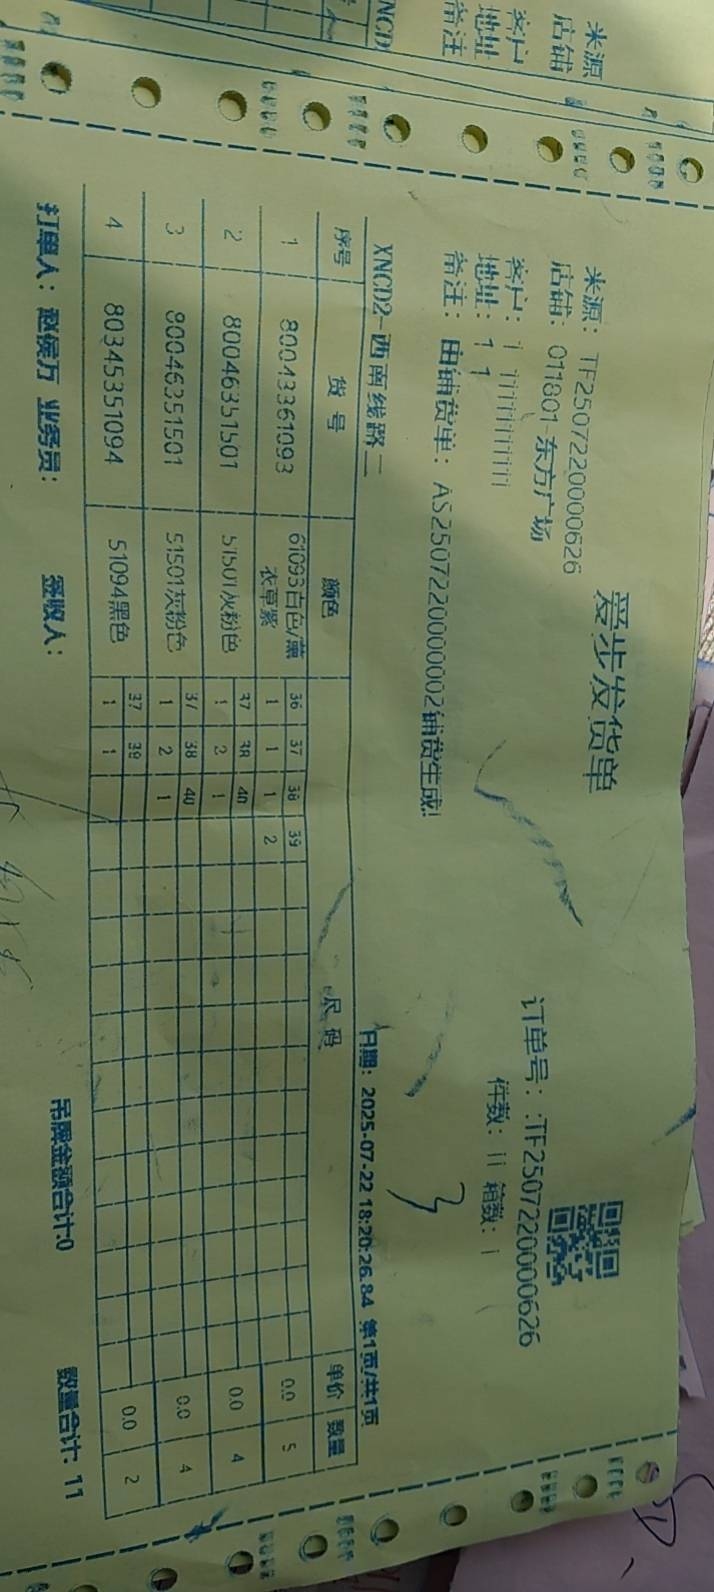 爱步发货单
来源：TF2507220000626
店铺：011801 东方广场
订单号：:TF2507220000626
客户：1 11111111111
件数：11 箱数：1
地址：1 1
备注：由铺货单：AS2507220000002铺货生成!
XNCD2-西南线路二
日期：2025-07-22 18:20:26.84 第1页/共1页
序号 货号 颜色 尺码 单价 数量
1 80043361093 61093白色/薰衣草紫 36 37 38 39 0.0 5
1 1 1 2
2 80046351501 51501灰粉色 37 38 40 0.0 4
1 2 1
3 80046351501 51501灰粉色 37 38 40 0.0 4
1 2 1
4 80345351094 51094黑色 37 39 0.0 2
1 1
打单人： 业务员： 签收人： 吊牌金额合计:0 数量合计: 11
3
来源
店铺
客户
地址
备注
XNCD